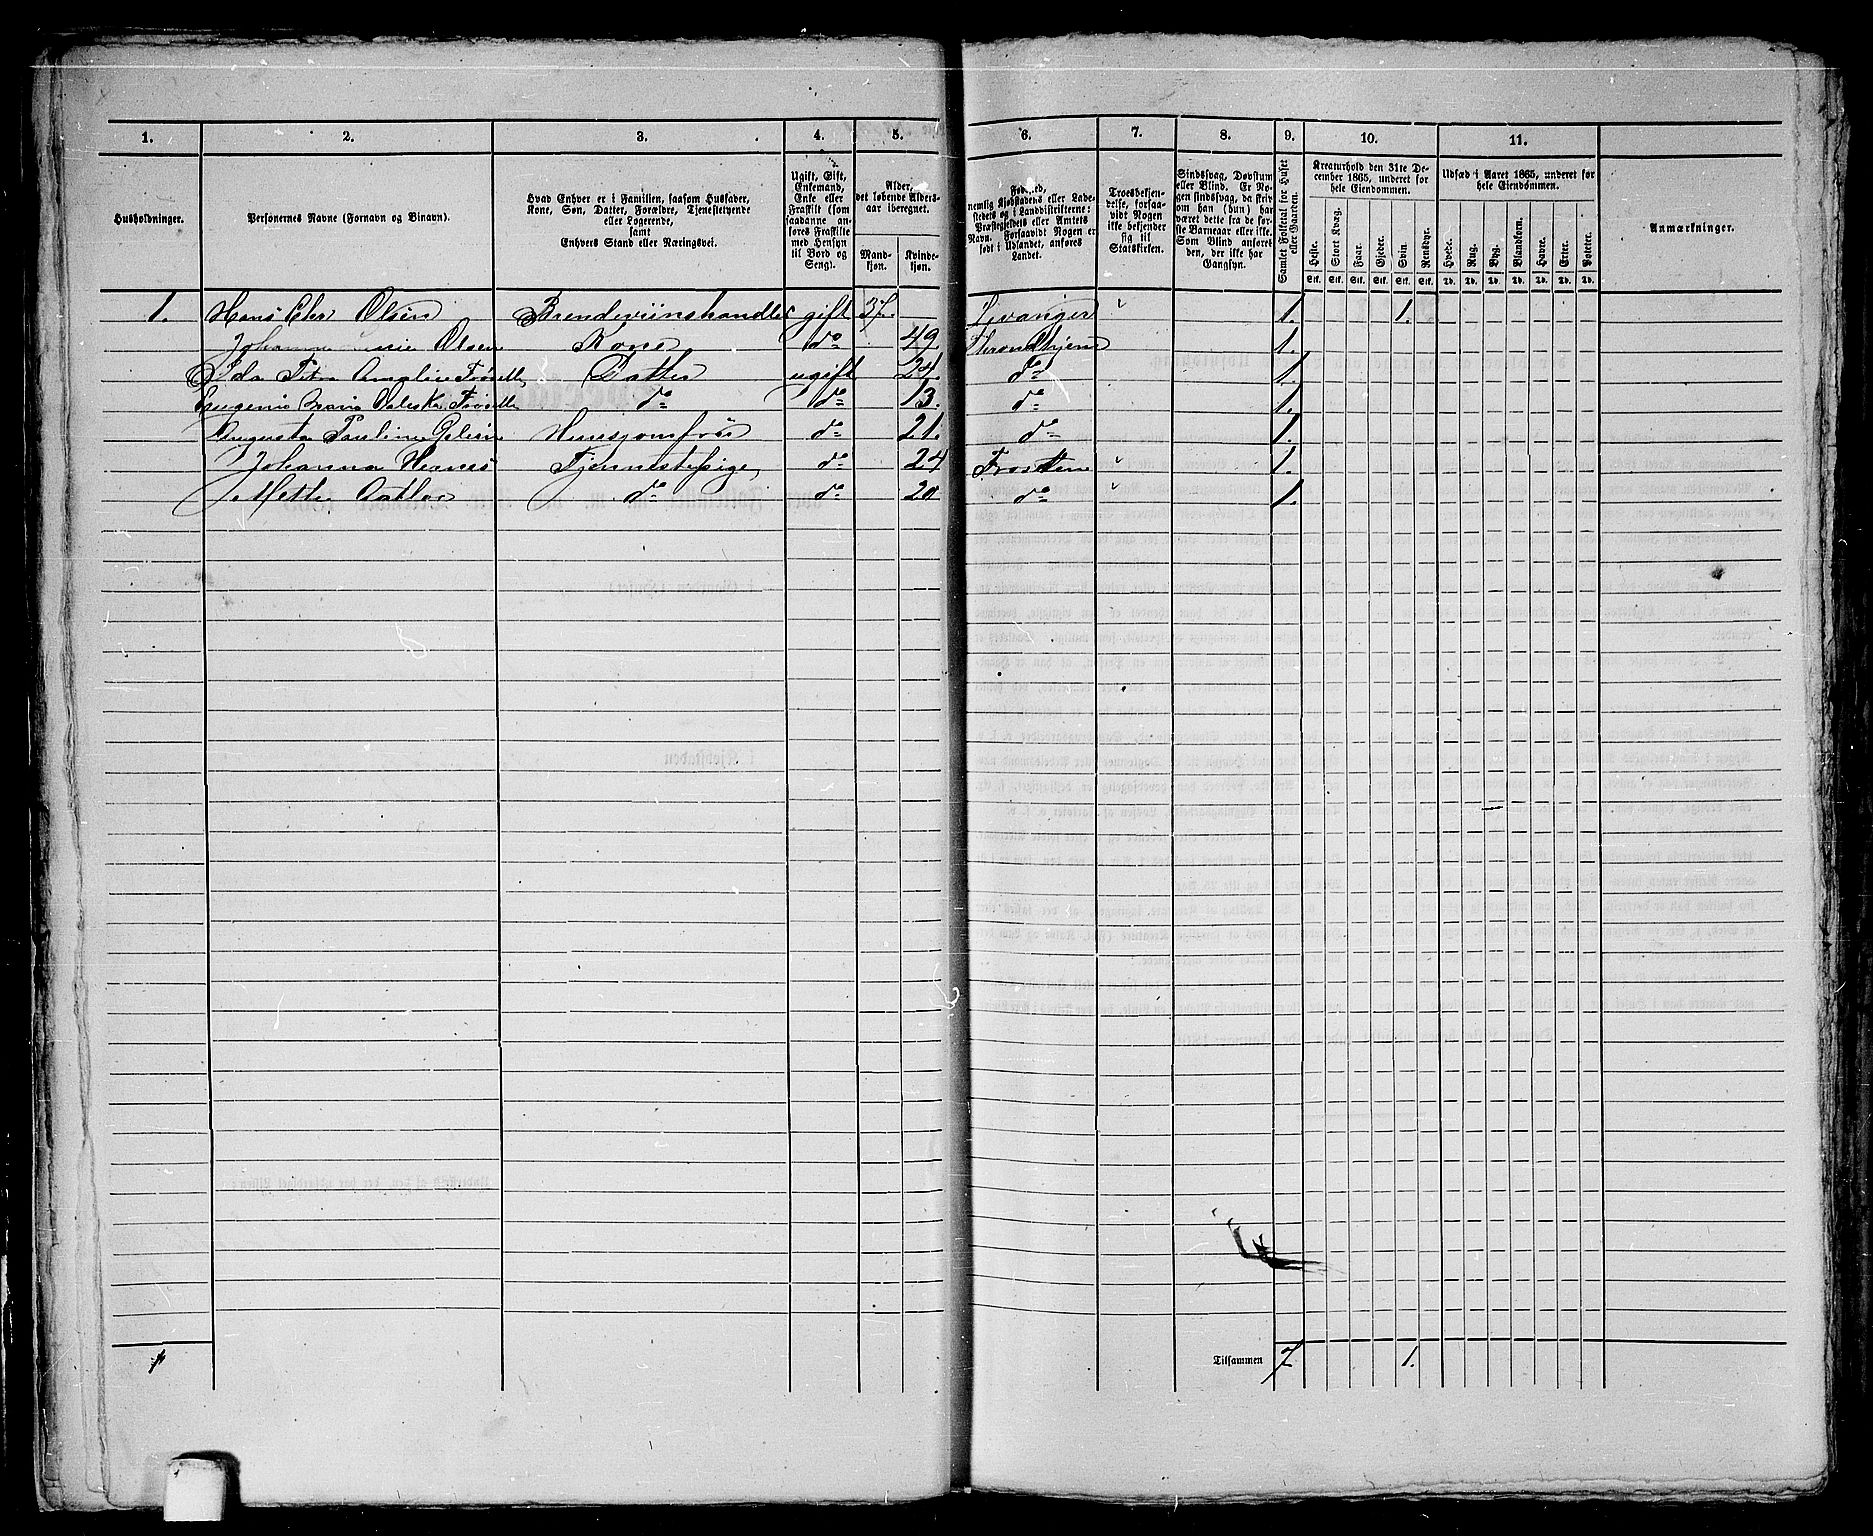 1. 2. 3. 4. 5. 6. 7. 8. 9. 10. 11.
Husholdninger.
Personernes Navne (Fornavn og Binavn).
Hvad Enhver er i Familien, saasom Husfader,
Kone, Søn, Datter, Forældre, Tjenestetyende
eller Logerende,
samt
Enhvers Stand eller Næringsvei.
Ugift, Gift,
Enkemand,
Enke eller
Fraskilt (som
saadanne an-
føres Fraskilte
med Hensyn
til Bord og
Seng).
Alder,
det løbende Alders-
aar iberegnet.
Mand-
kjøn.
Kvinde-
kjøn.
Fødested,
nemlig Kjøbstadens eller Lade-
stedets og i Landdistrikterne:
Præstegjeldets eller Amtets
Navn. Forsaavidt Nogen er
født i Udlandet, anføres
Landet.
Troesbekjen-
delse, forsaa-
vidt Nogen
ikke bekjender
sig til
Statskirken.
Sindssvag, Døvstum
eller Blind. Er No-
gen sindssvag, da skriv
om han (hun) har
været dette fra de før-
ste Barneaar eller ikke.
Som Blind anføres
den, der ikke har
Gangsyn.
Samlet Folketal for Huset
eller Gaarden.
Kreaturhold den 31te De-
cember 1865, underet for
hele Eiendommen.
Heste. Stort Kvæg. Faar. Gjeder. Svin. Rensdyr.
Stk. Stk. Stk. Stk. Stk. Stk.
Udsæd i Aaret 1865, underet for
hele Eiendommen.
Hvede. Rug. Byg. Blandkorn. Havre. Erter. Poteter.
Td. Td. Td. Td. Td. Td. Td.
Anmærkninger.
1. Hans Chr Olsen Brendeviinshandler gift 37. Levanger " 1. 1.
Johanna Olsen Kone do 49. Throndhjem 1.
Ida Petra Amalie Datter ugift 24. do 1.
Eugenie Maria Valeska do do 13. do 1.
Augusta Pauline Huusjomfru do 21. do 1.
Johanna Tjenestepige do 24 Frosten " 1.
Mette do do 20 do " 1.
1 Tilsammen 7 1.